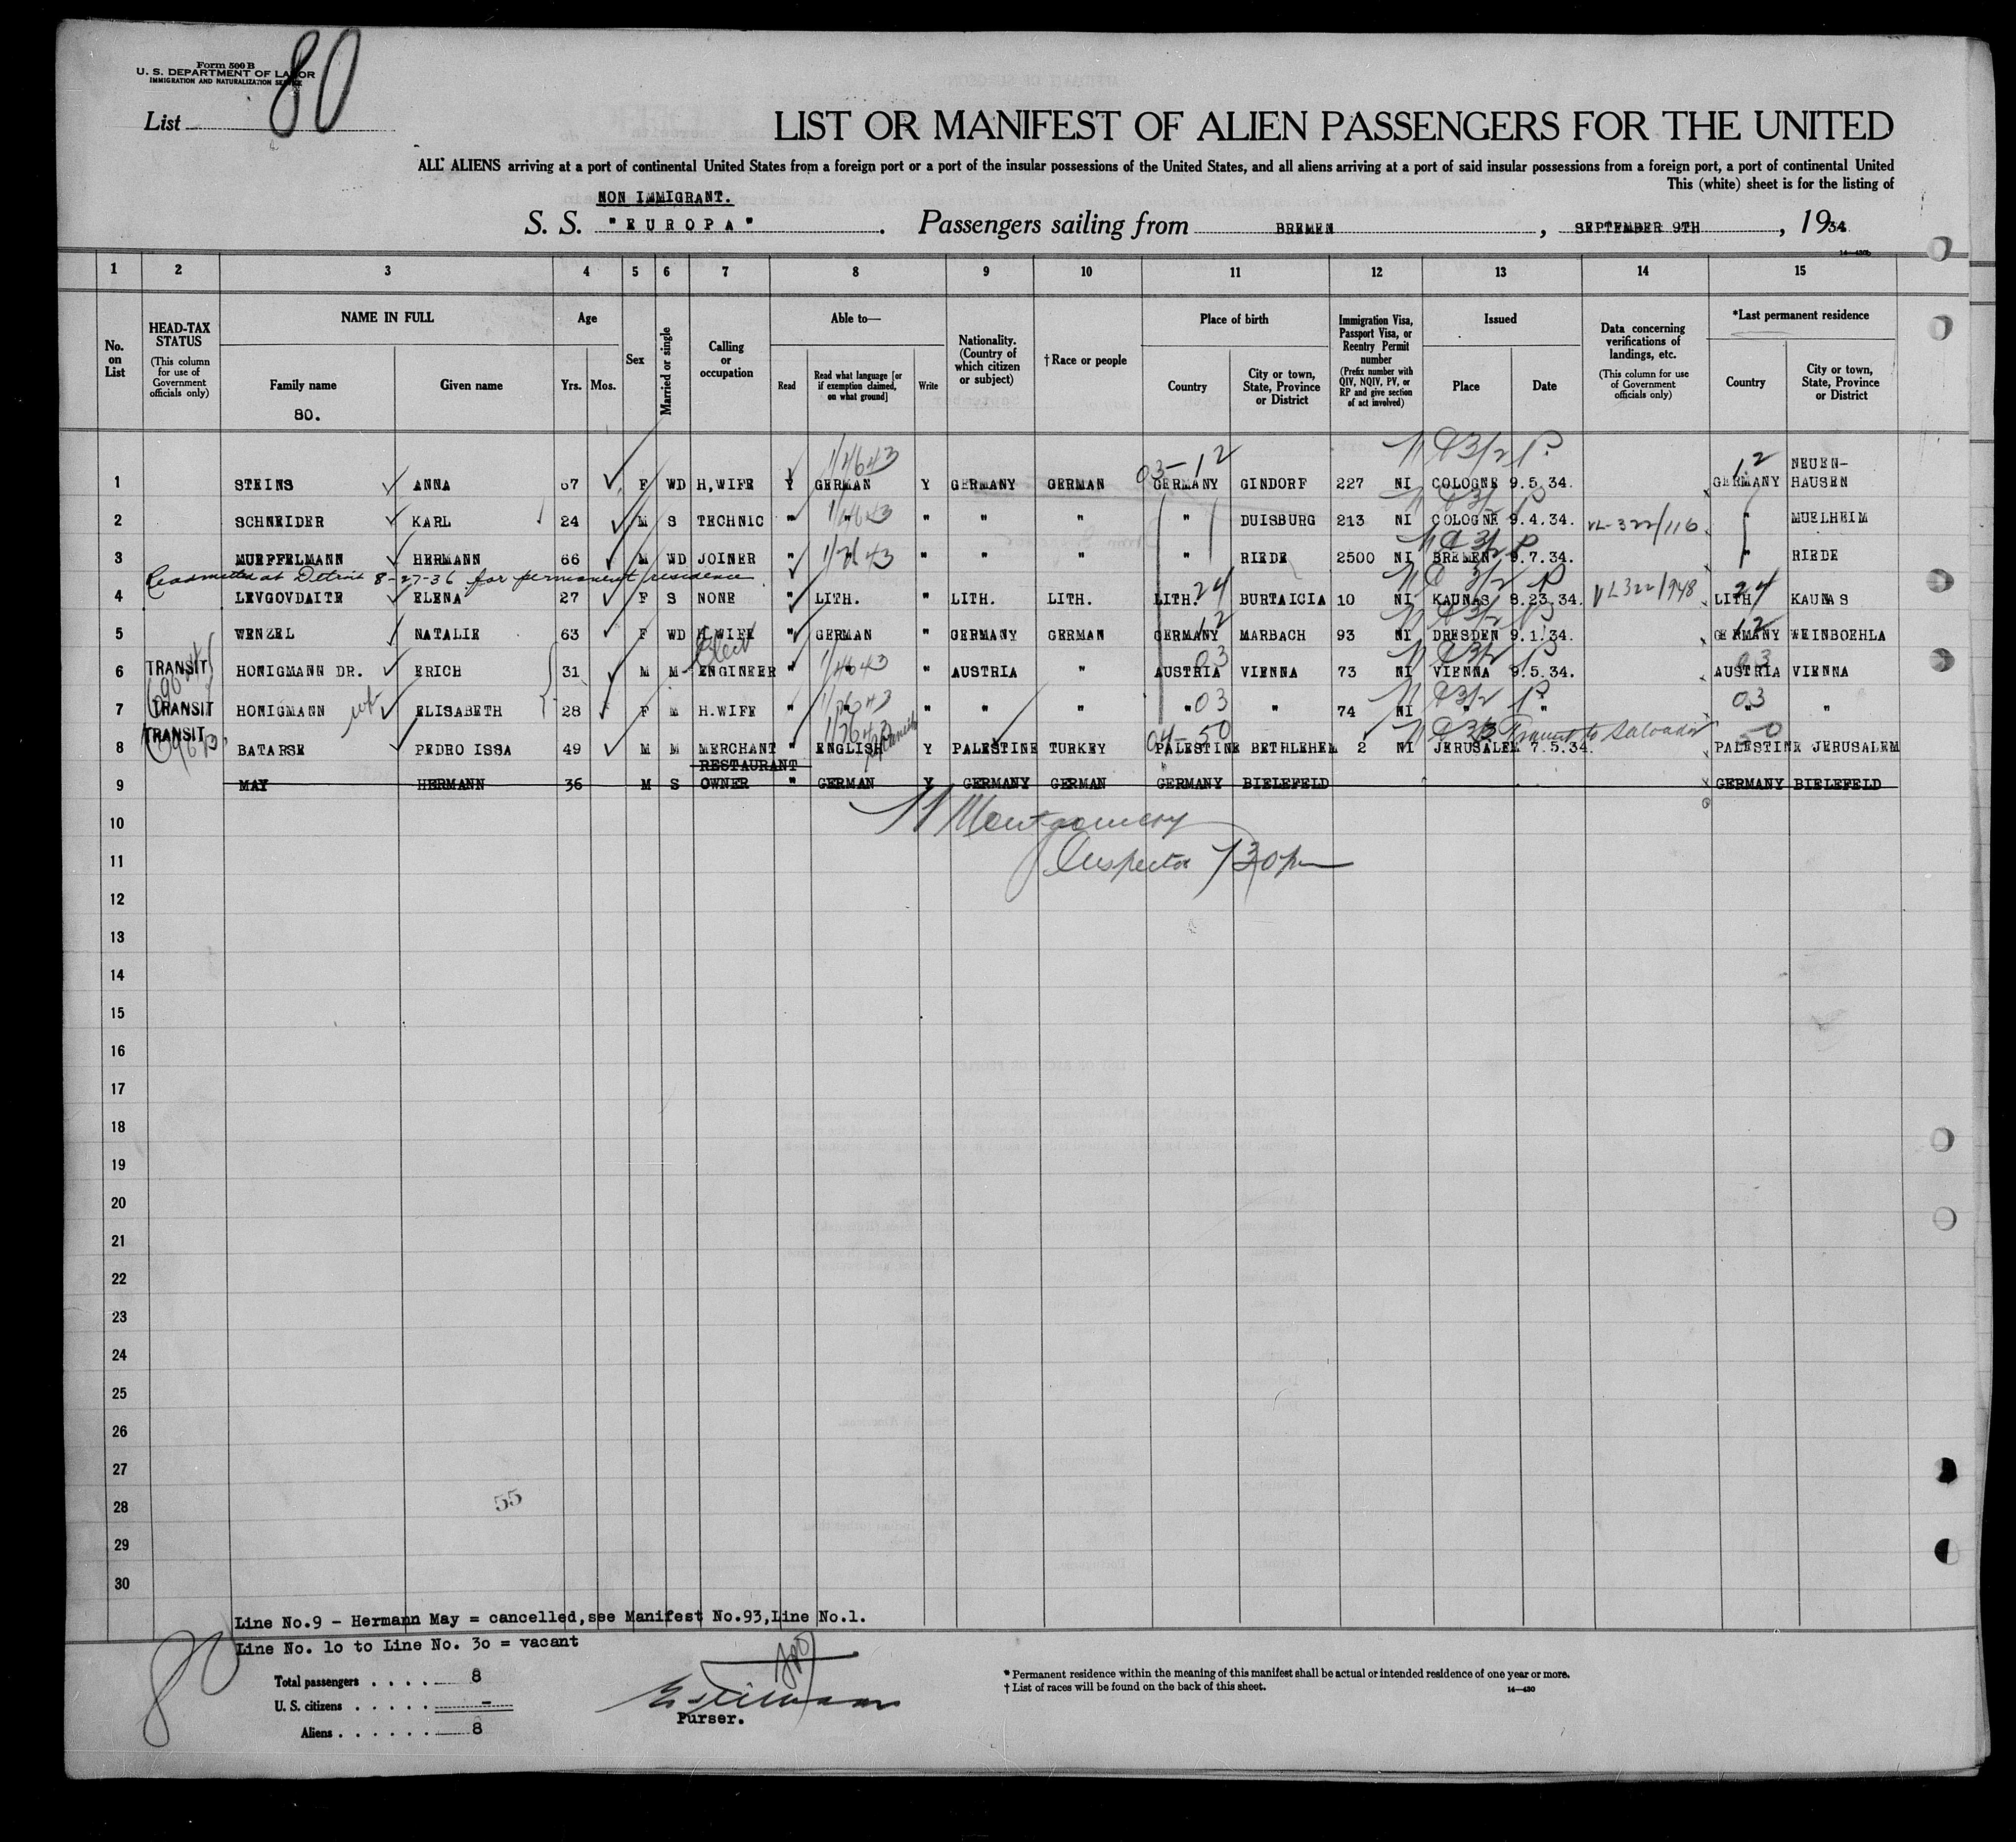 Form 500 B
U. S. DEPARTMENT OF LABOR
IMMIGRATION AND NATURALIZATION SERVICE
80
List
LIST OR MANIFEST OF ALIEN PASSENGERS FOR THE UNITED
ALL ALIENS arriving at a port of continental United States from a foreign port or a port of the insular possessions of the United States, and all aliens arriving at a port of said insular possessions from a foreign port, a port of continental United
This (white) sheet is for the listing of
NON IMMIGRANT.
S. S. "EUROPA". Passengers sailing from BREMEN, SEPTEMBER 9TH, 1934
14—430b
1 2 3 4 5 6 7 8 9 10 11 12 13 14 15
No. on List
HEAD-TAX STATUS
(This column for use of Government officials only)
NAME IN FULL
Family name
80.
Given name
Age
Yrs. Mos.
Sex
Married or single
Calling or occupation
Able to—
Read
Read what language [or if exemption claimed, on what ground]
Write
Nationality. (Country of which citizen or subject)
† Race or people
Place of birth
Country
City or town, State, Province or District
Immigration Visa, Passport Visa, or Reentry Permit number
(Prefix number with QIV, NQIV, PV, or RP and give section of act involved)
Issued
Place
Date
Data concerning verifications of landings, etc.
(This column for use of Government officials only)
*Last permanent residence
Country
City or town, State, Province or District
03-12 12
1 STEINS ANNA 67 F WD H,WIFE Y GERMAN Y GERMANY GERMAN GERMANY GINDORF 227 NI COLOGNE 9.5.34. GERMANY NEUEN-HAUSEN
2 SCHNEIDER KARL 24 M S TECHNIC " " " " " " DUISBURG 213 NI COLOGNE 9.4.34. VL-322/116 " MUELHEIM
3 MUEFFELMANN HERMANN 66 M WD JOINER " " " " " " RIEDE 2500 NI BREMEN 9.7.34. " RIEDE
Readmitted at Detroit 8-27-36 for permanent residence
24 24
4 LEVGOVDAITE ELENA 27 F S NONE " LITH. " LITH. LITH. LITH. BURTAICIA 10 NI KAUNAS 8.23.34. VL322/948 LITH. KAUNAS
12 12
5 WENZEL NATALIE 63 F WD H.WIFE " GERMAN " GERMANY GERMAN GERMANY MARBACH 93 NI DRESDEN 9.1.34. GERMANY WEINBOEHLA
Elect
03 03
6 TRANSIT HONIGMANN DR. ERICH 31 M M ENGINEER " " " AUSTRIA " AUSTRIA VIENNA 73 NI VIENNA 9.5.34. AUSTRIA VIENNA
03 03
7 TRANSIT HONIGMANN wf ELISABETH 28 F M H.WIFE " " " " " " " 74 NI " " " "
04-50 Spanish Transit to Salvador 50
8 TRANSIT BATARSE PEDRO ISSA 49 M M MERCHANT " ENGLISH Y PALESTINE TURKEY PALESTINE BETHLEHEM 2 NI JERUSALEM 7.5.34. PALESTINE JERUSALEM
9 MAY HERMANN 36 M S RESTAURANT OWNER " GERMAN Y GERMANY GERMAN GERMANY BIELEFELD GERMANY BIELEFELD
10
Montgomery
11
Inspector 730pm
12
13
14
15
16
17
18
19
20
21
22
23
24
25
26
27
28
55
29
30
Line No.9 - Hermann May = cancelled,see Manifest No.93,Line No.1.
Line No. 10 to Line No. 30 = vacant
80
Total passengers 8
U. S. citizens -
Aliens 8
Purser.
* Permanent residence within the meaning of this manifest shall be actual or intended residence of one year or more.
† List of races will be found on the back of this sheet.
14—430